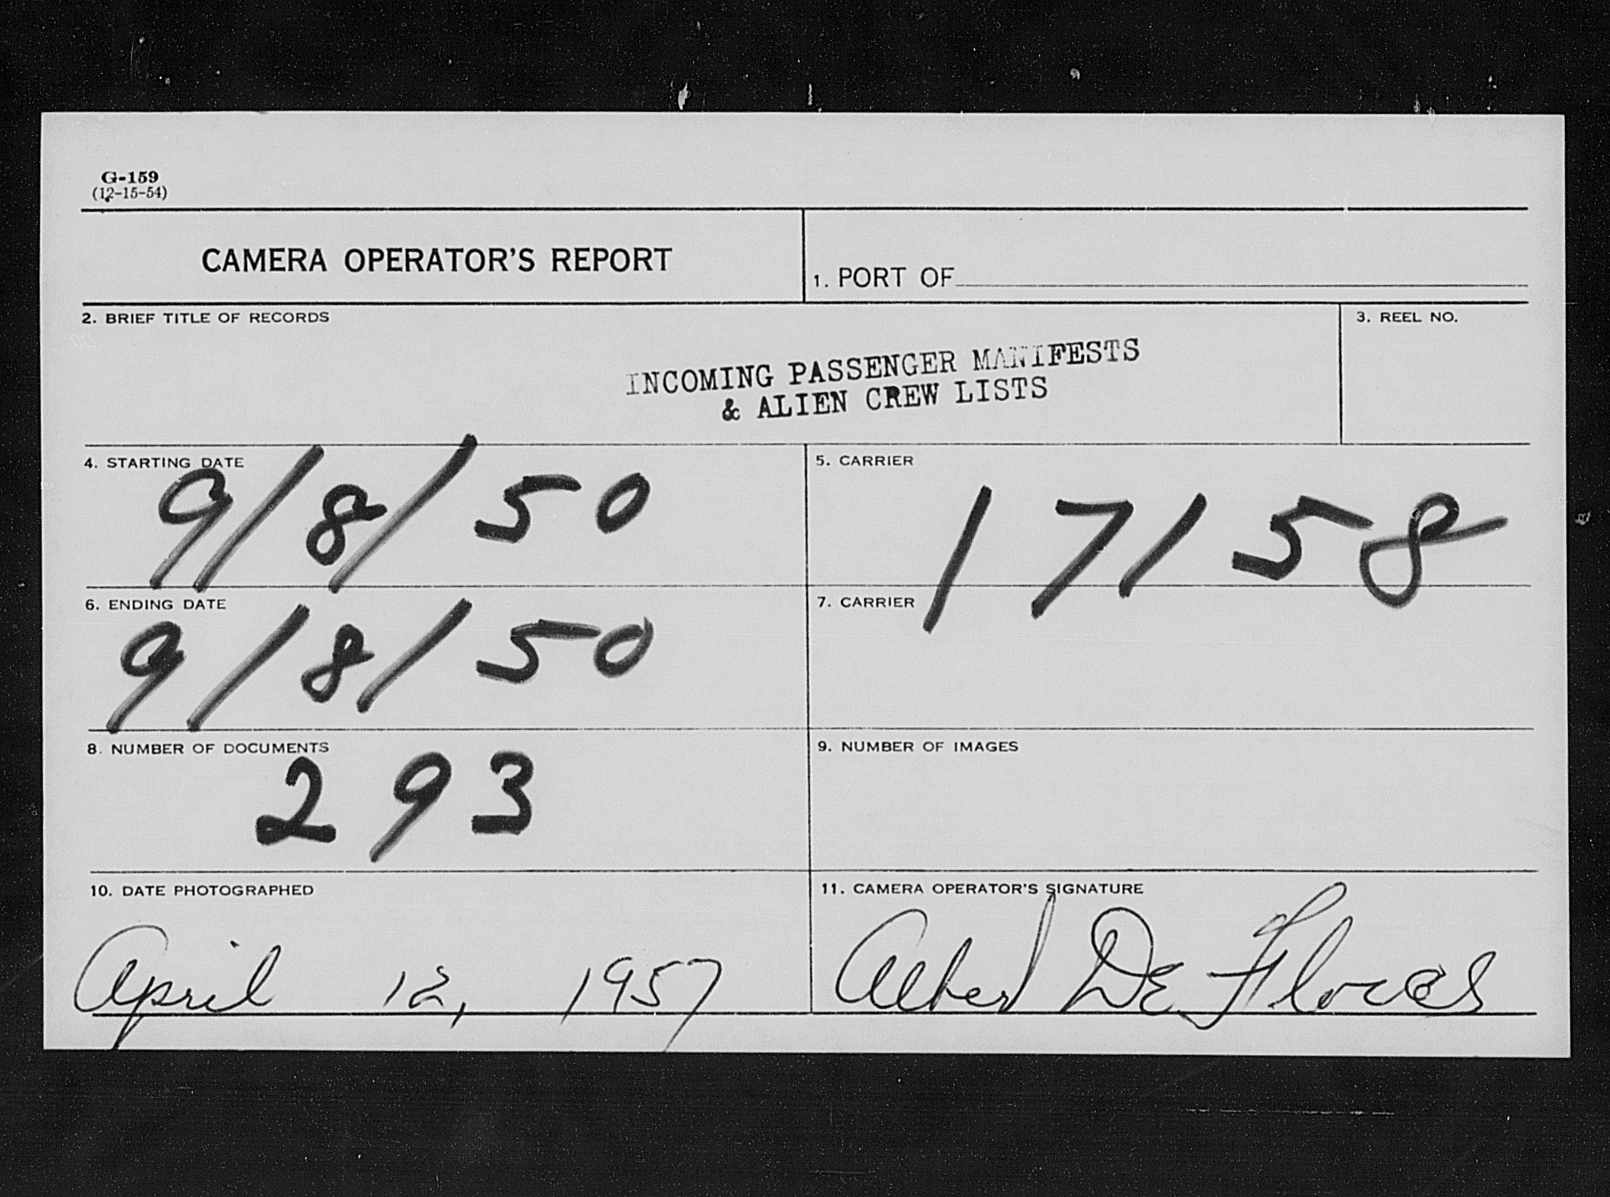 G-159
(12-15-54)
CAMERA OPERATOR'S REPORT
1. PORT OF
2. BRIEF TITLE OF RECORDS
3. REEL NO.
INCOMING PASSENGER MANIFESTS
& ALIEN CREW LISTS
4. STARTING DATE
9/8/50
5. CARRIER
17158
6. ENDING DATE
9/8/50
7. CARRIER
8. NUMBER OF DOCUMENTS
293
9. NUMBER OF IMAGES
10. DATE PHOTOGRAPHED
April 12, 1957
11. CAMERA OPERATOR'S SIGNATURE
Albert De Flores